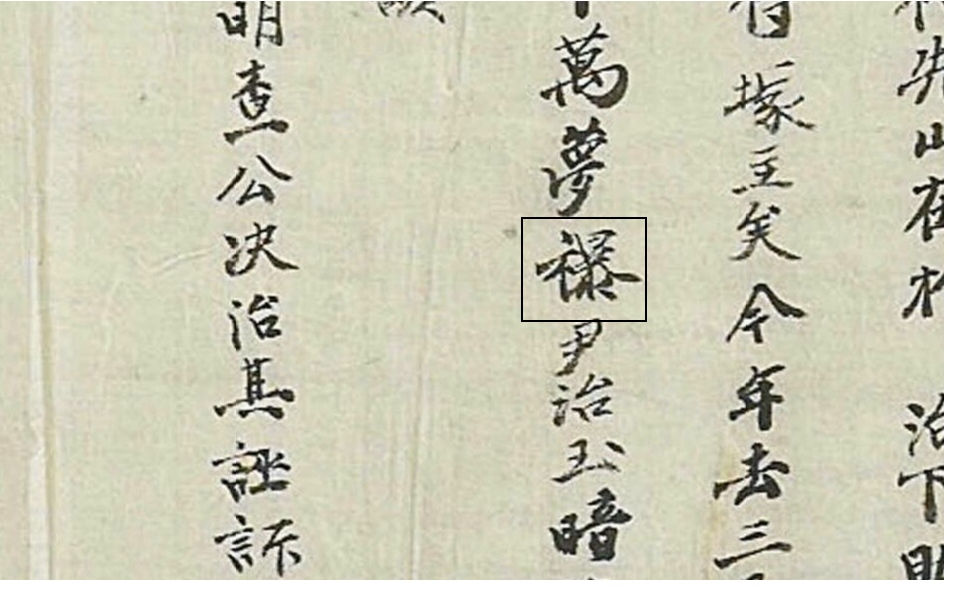 先山在於 治下
塚主矣今年去三
萬夢尹治玉暗
明查公决治其誣訴